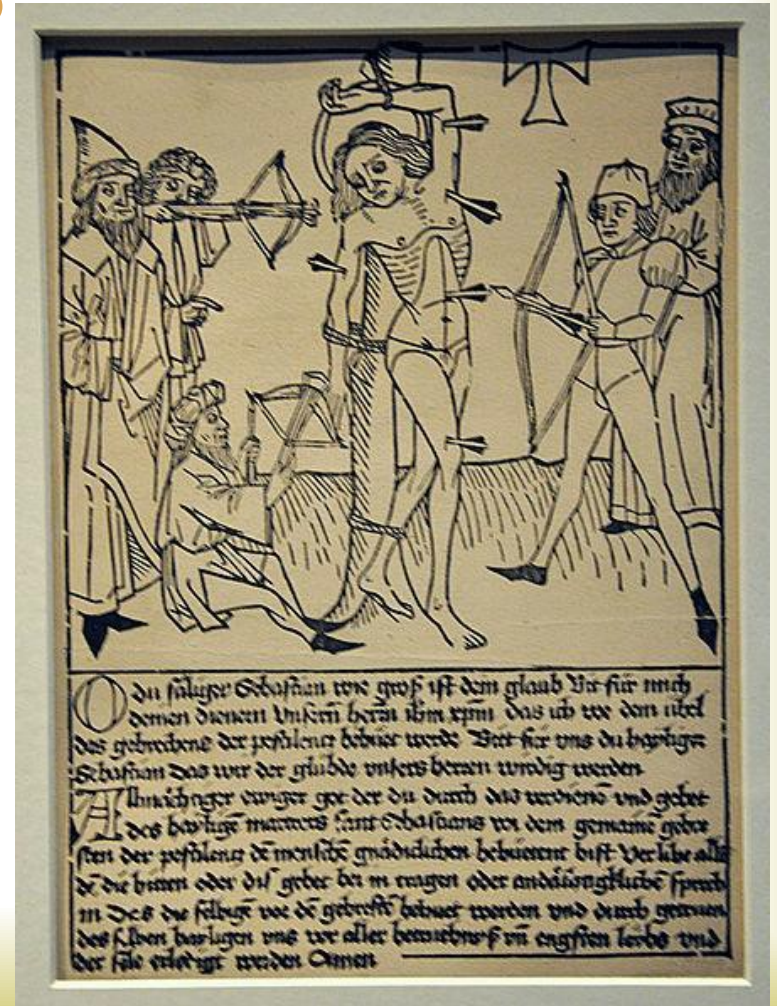 O du säliger Sebastian wie groß ist dem glaub Bit für mich
deinen dienern Unsern herrn ihm xpm das ich vor dem ubel
des gebrechens der pestilentz behüet werde Bitt für vns du hayliger
Sebastian das wir der glübde vnsers herren wirdig werden
Almächtiger ewiger got der du durch das verdiene vnd gebet
des haylige martrers sant Sebastians vor dem gemaine gebre
sten der pestilentz de mensche gnädiclichen behüetent bist Verlihe alle
de die bitten oder diß gebet bei in tragen oder andächtigkliche sprech
in Des die selbige vor de gebreste behuet werden vnd durch getruen
des selben hayligen vns vor aller betruebnuß vn engsten leibs vnd
der sele erledigt werden Amen